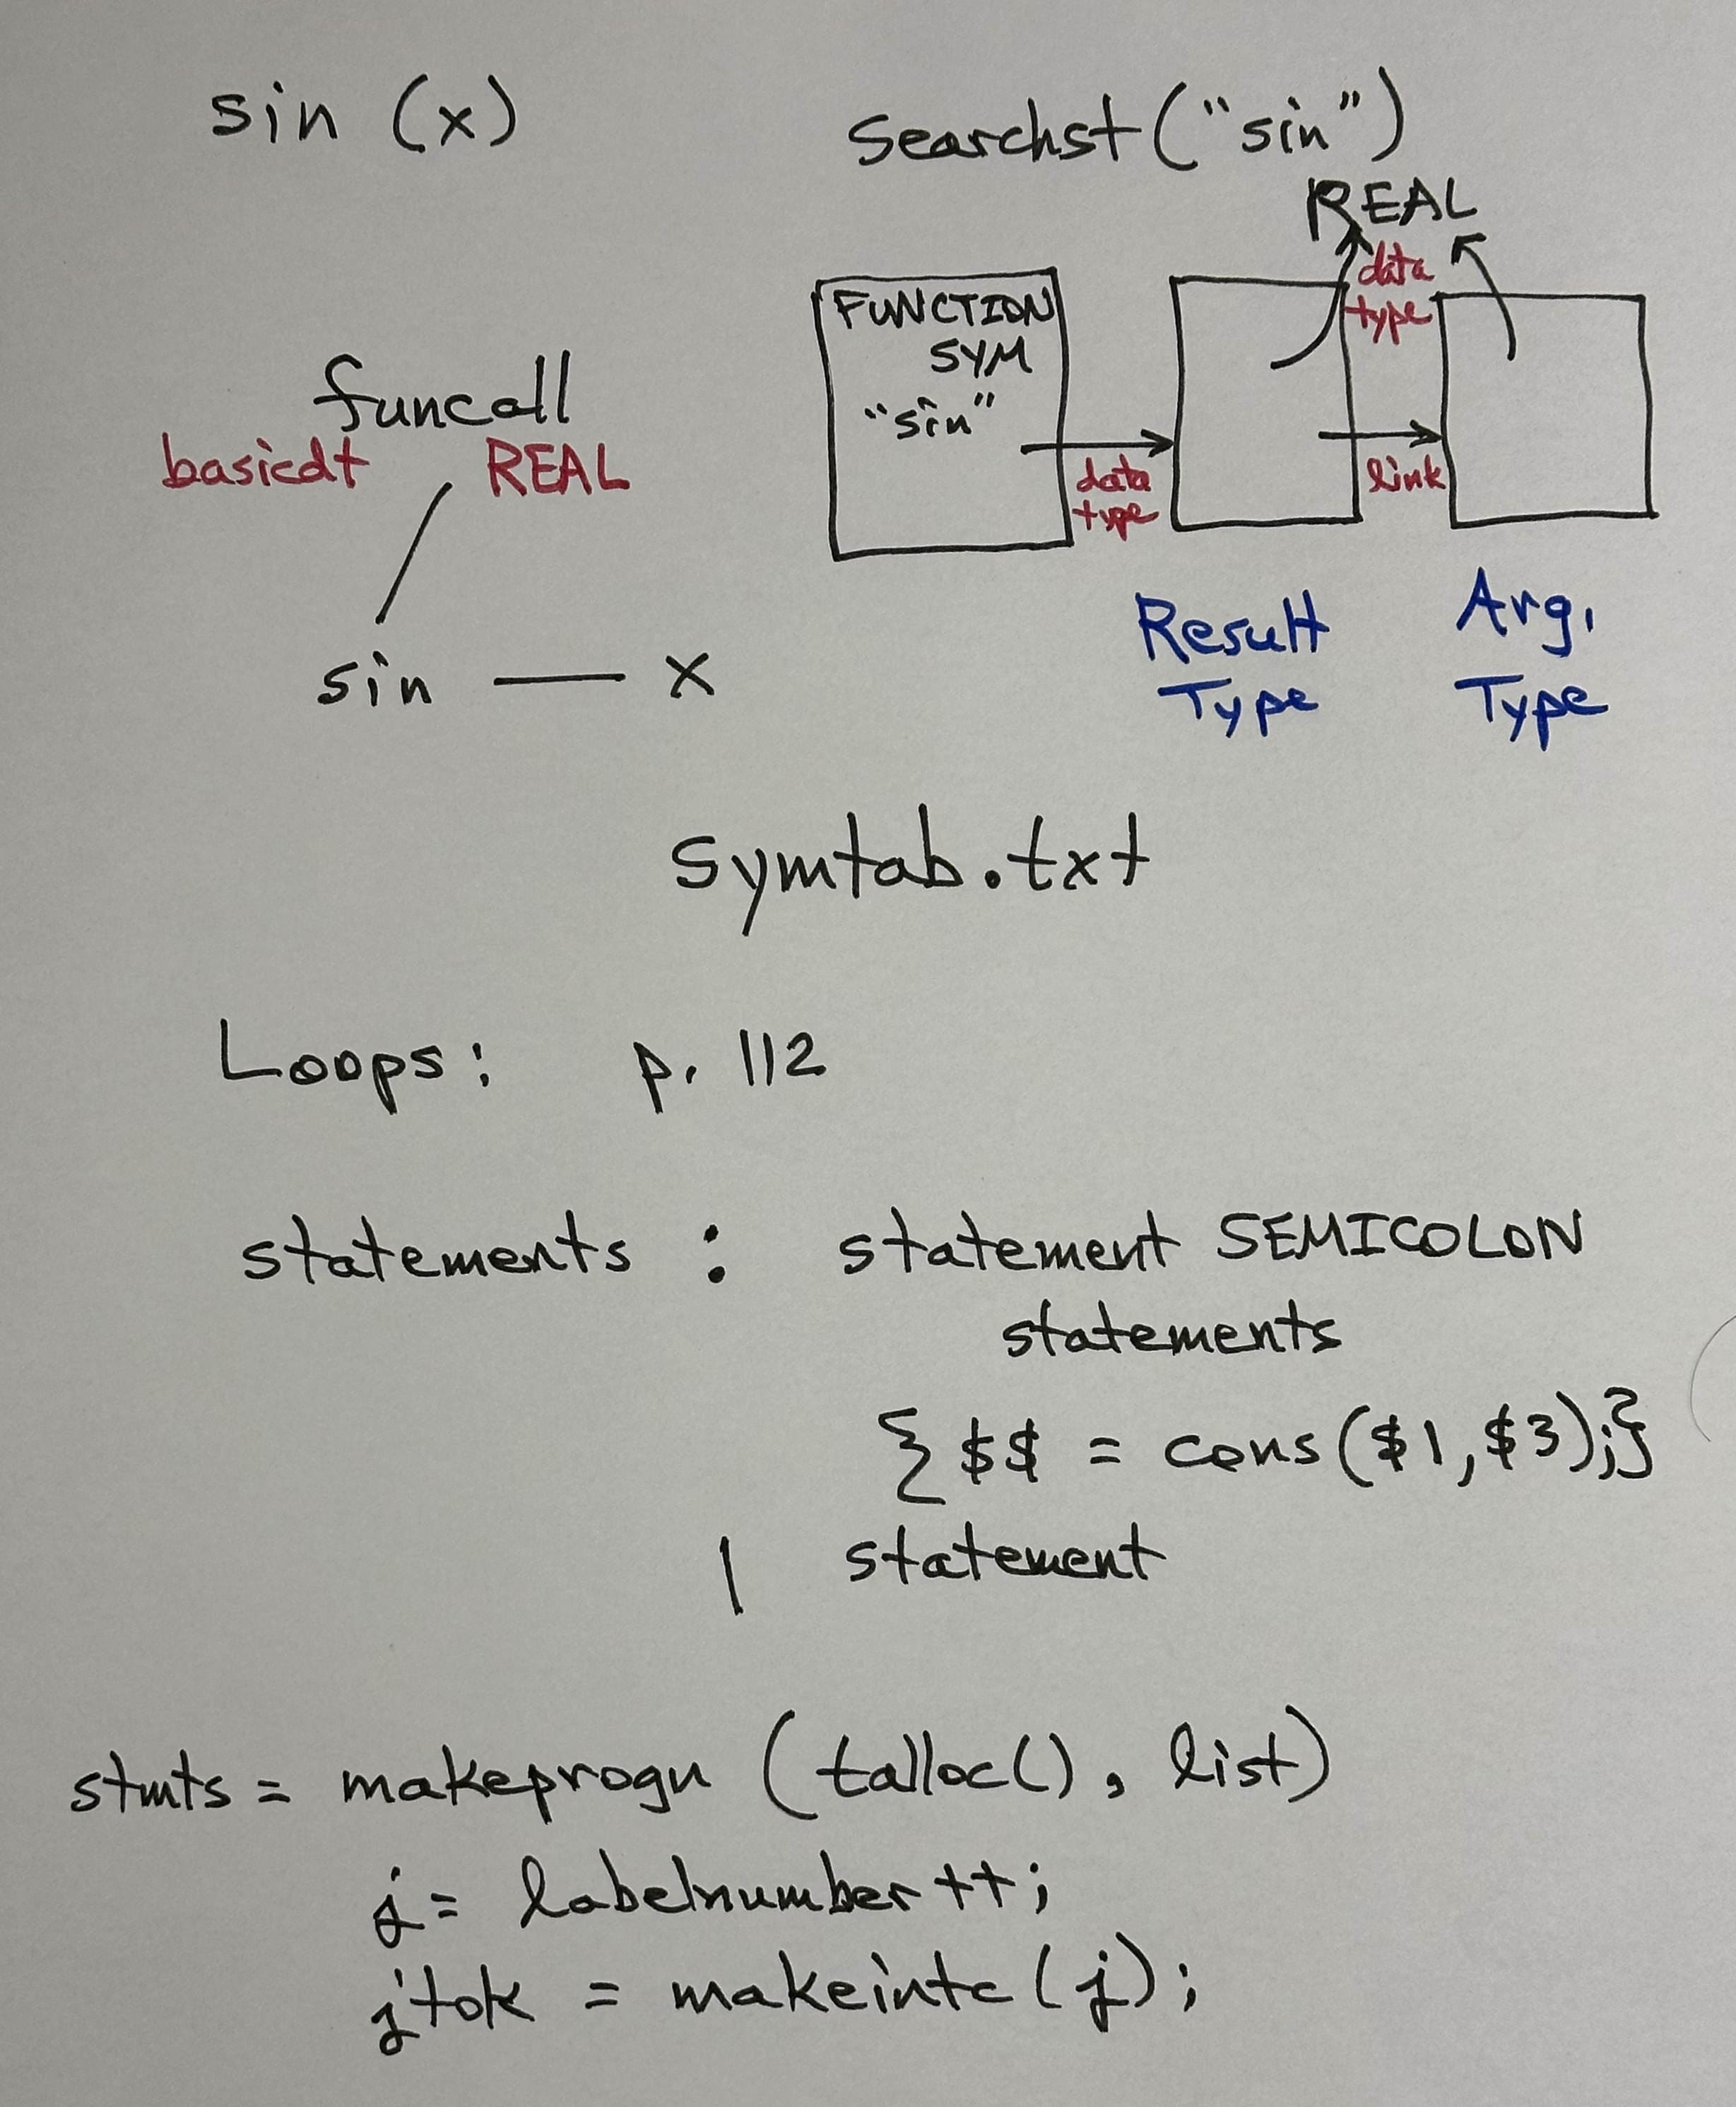 sin (x)
searchst("sin")
REAL
data
type
FUNCTION
SYM
"sin"
data
type
link
funcall
basicdt REAL
sin — x
Result
Type
Arg.
Type
symtab.txt
Loops: p. 112
statements : statement SEMICOLON
statements
{ $$ = cons($1,$3);}
| statement
stmts = makeprogn (talloc(), list)
j = labelnumber++;
jtok = makeintc(j);